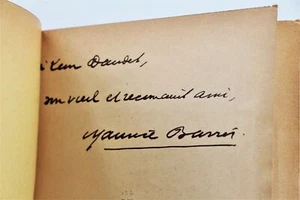 Léon Daudet,
son vieil et reconnaissant ami,
Maurice Barrès.